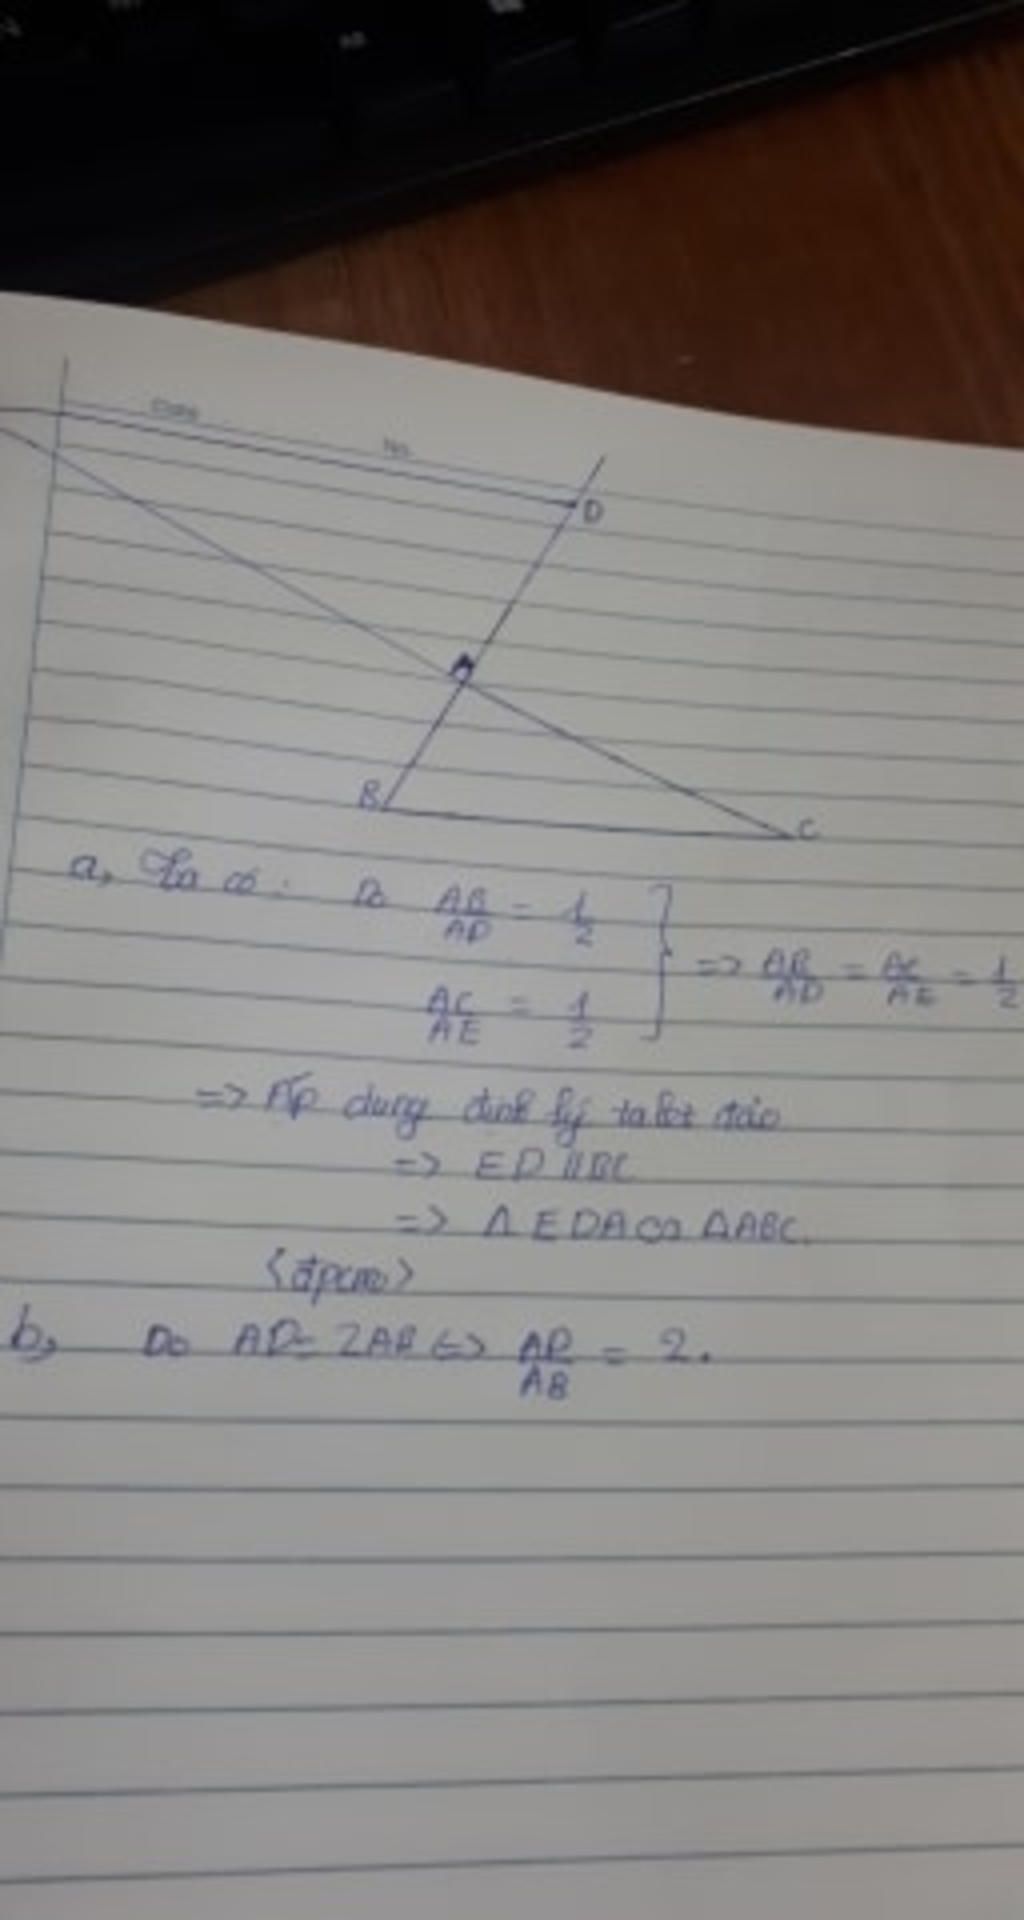 D
A
B
C
a, Ta có: Do AB/AD = 1/2
AC/AE = 1/2
=> AB/AD = AC/AE = 1/2
=> Áp dụng định lý talet đảo
=> ED // BC
=> Δ EDA ∽ ΔABC.
<đpcm>
b, Do AD = 2AB <=> AD/AB = 2.